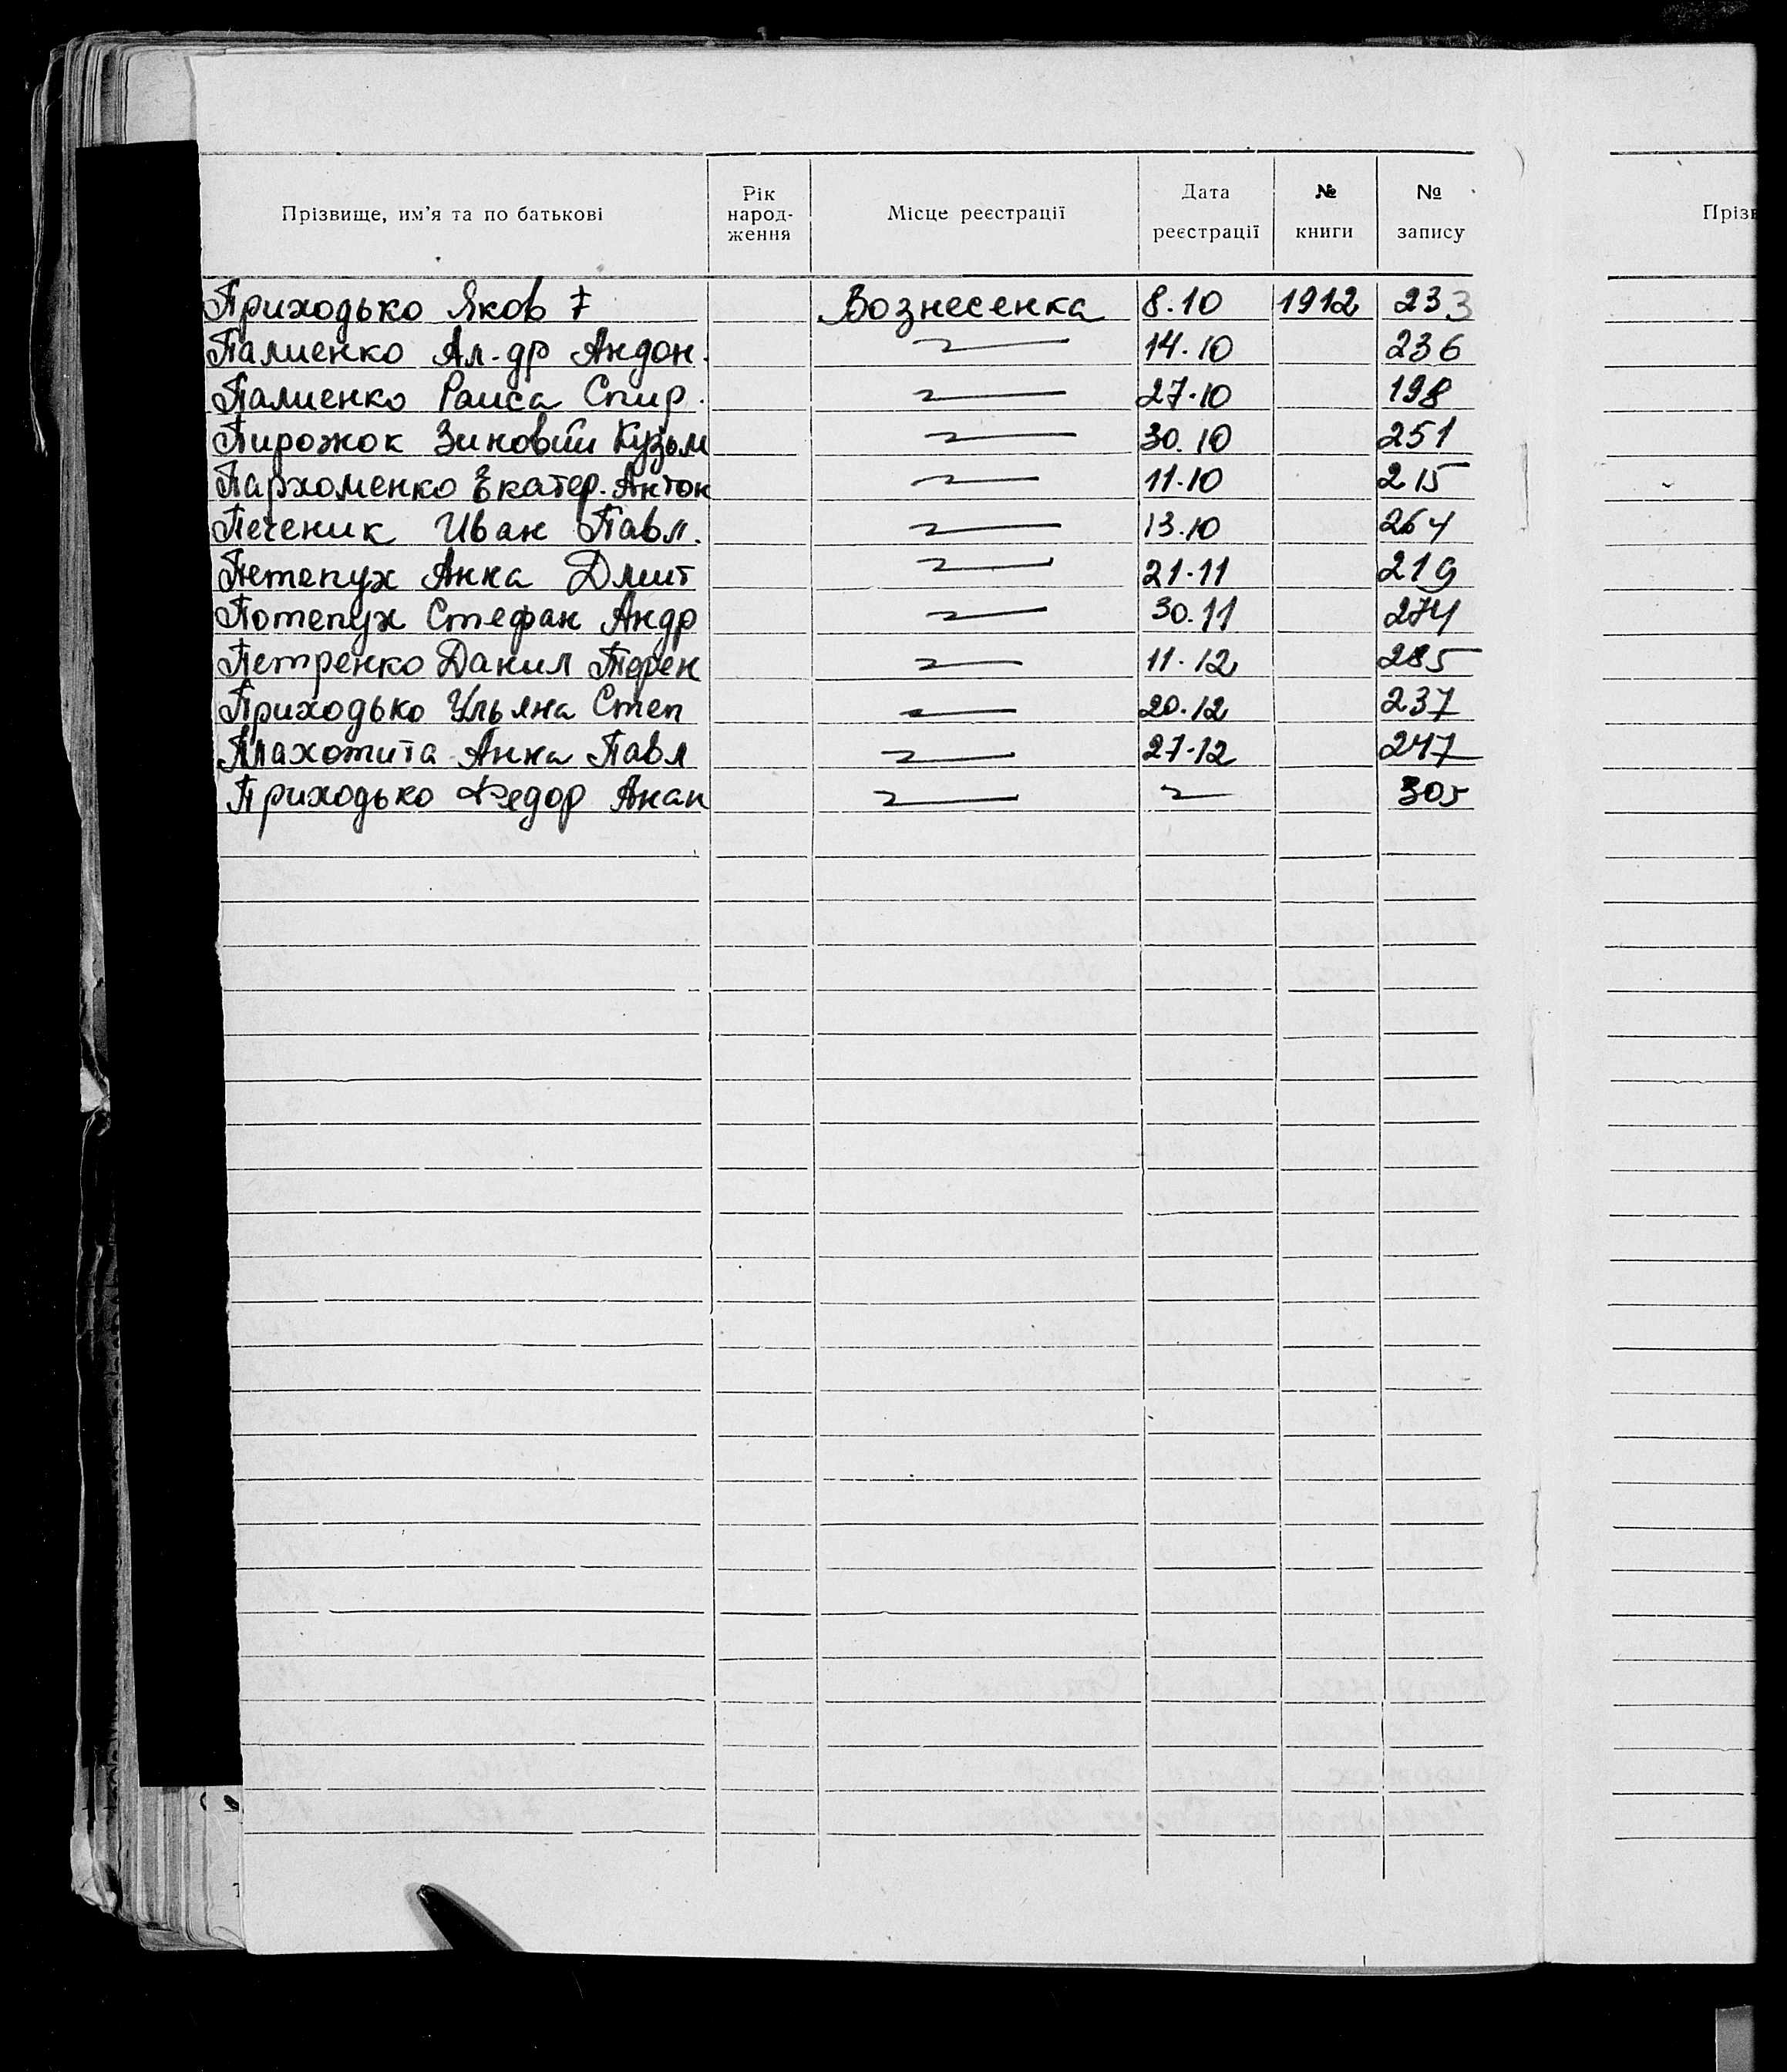 Прізвище, им'я та по батькові Рік народ-ження Місце реєстрації Дата реєстрації № книги № запису Прізв
Приходько Яков Вознесенка 8.10 1912 233
Палиенко Ал-др Андон. 14.10 236
Палиенко Раиса Спир. 27.10 198
Пирожок Зиновий Кузьм 30.10 251
Пархоменко Екатер. Антон 11.10 215
Печеник Иван Павл. 13.10 264
Петепух Анна Дмит 21.11 219
Потепух Стефан Андр 30.11 274
Петренко Данил Терен 11.12 285
Приходько Ульяна Степ 20.12 237
Анна Павл 27.12 247
Приходько Федор Анан 305